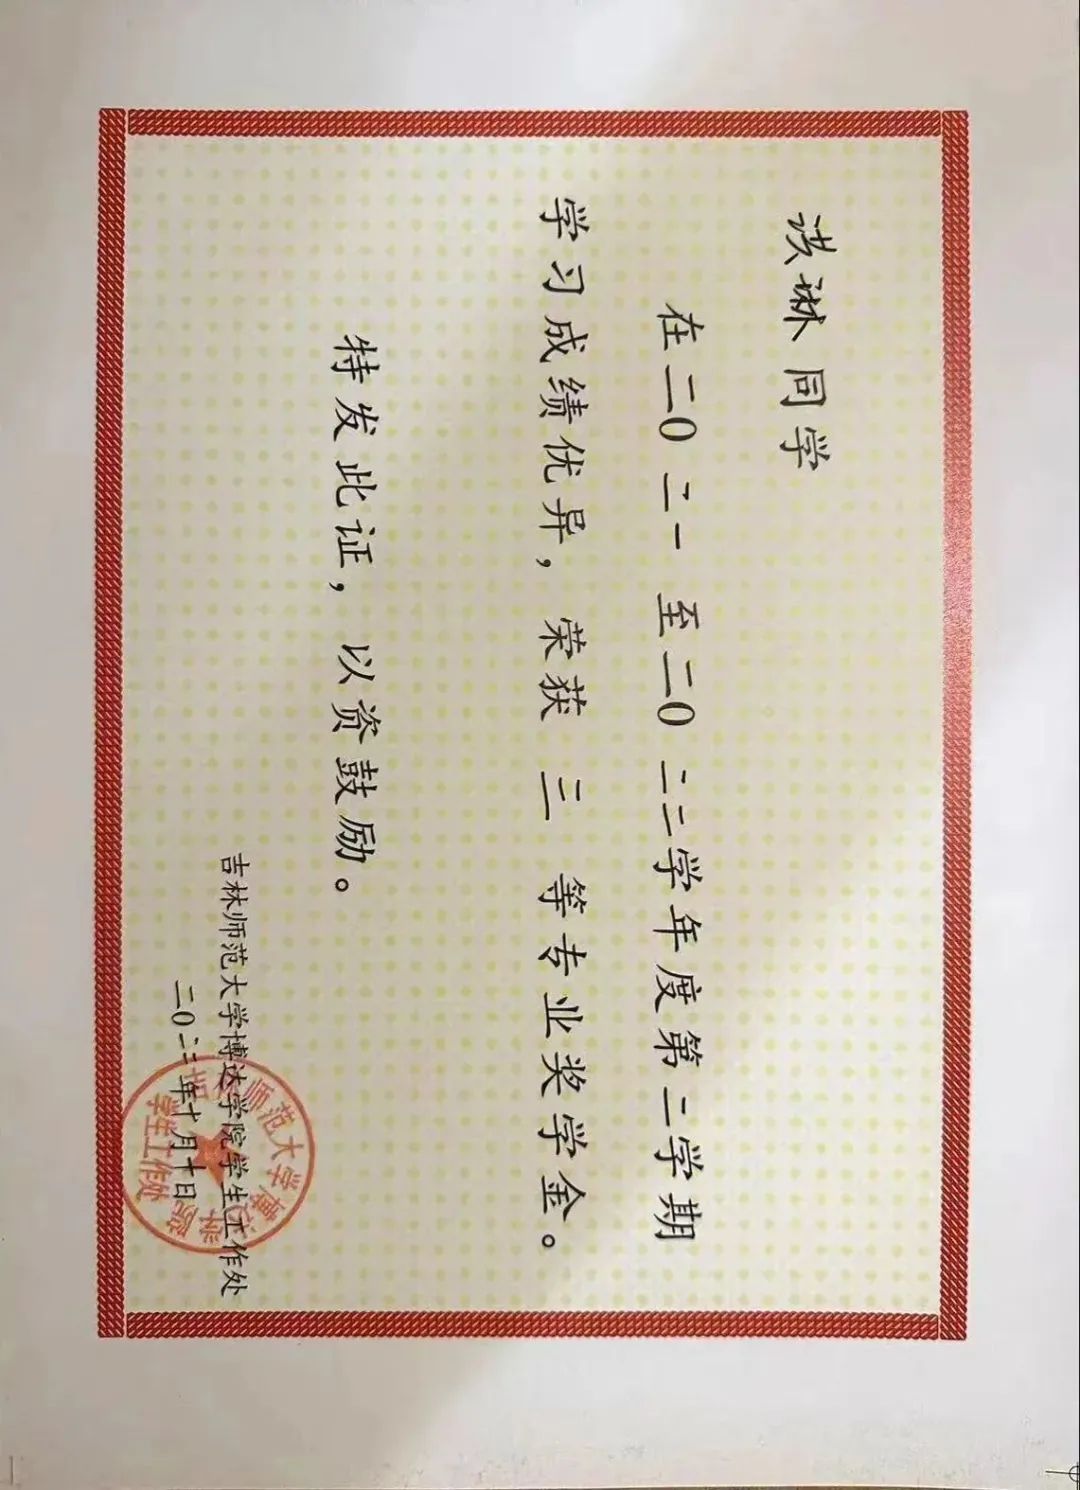 洪琳同学
在二〇二一至二〇二二学年度第二学期
学习成绩优异，荣获三等专业奖学金。
特发此证，以资鼓励。
吉林师范大学博达学院学生工作处
二〇二二年十月十日
吉林师范大学博达学院
学生工作处